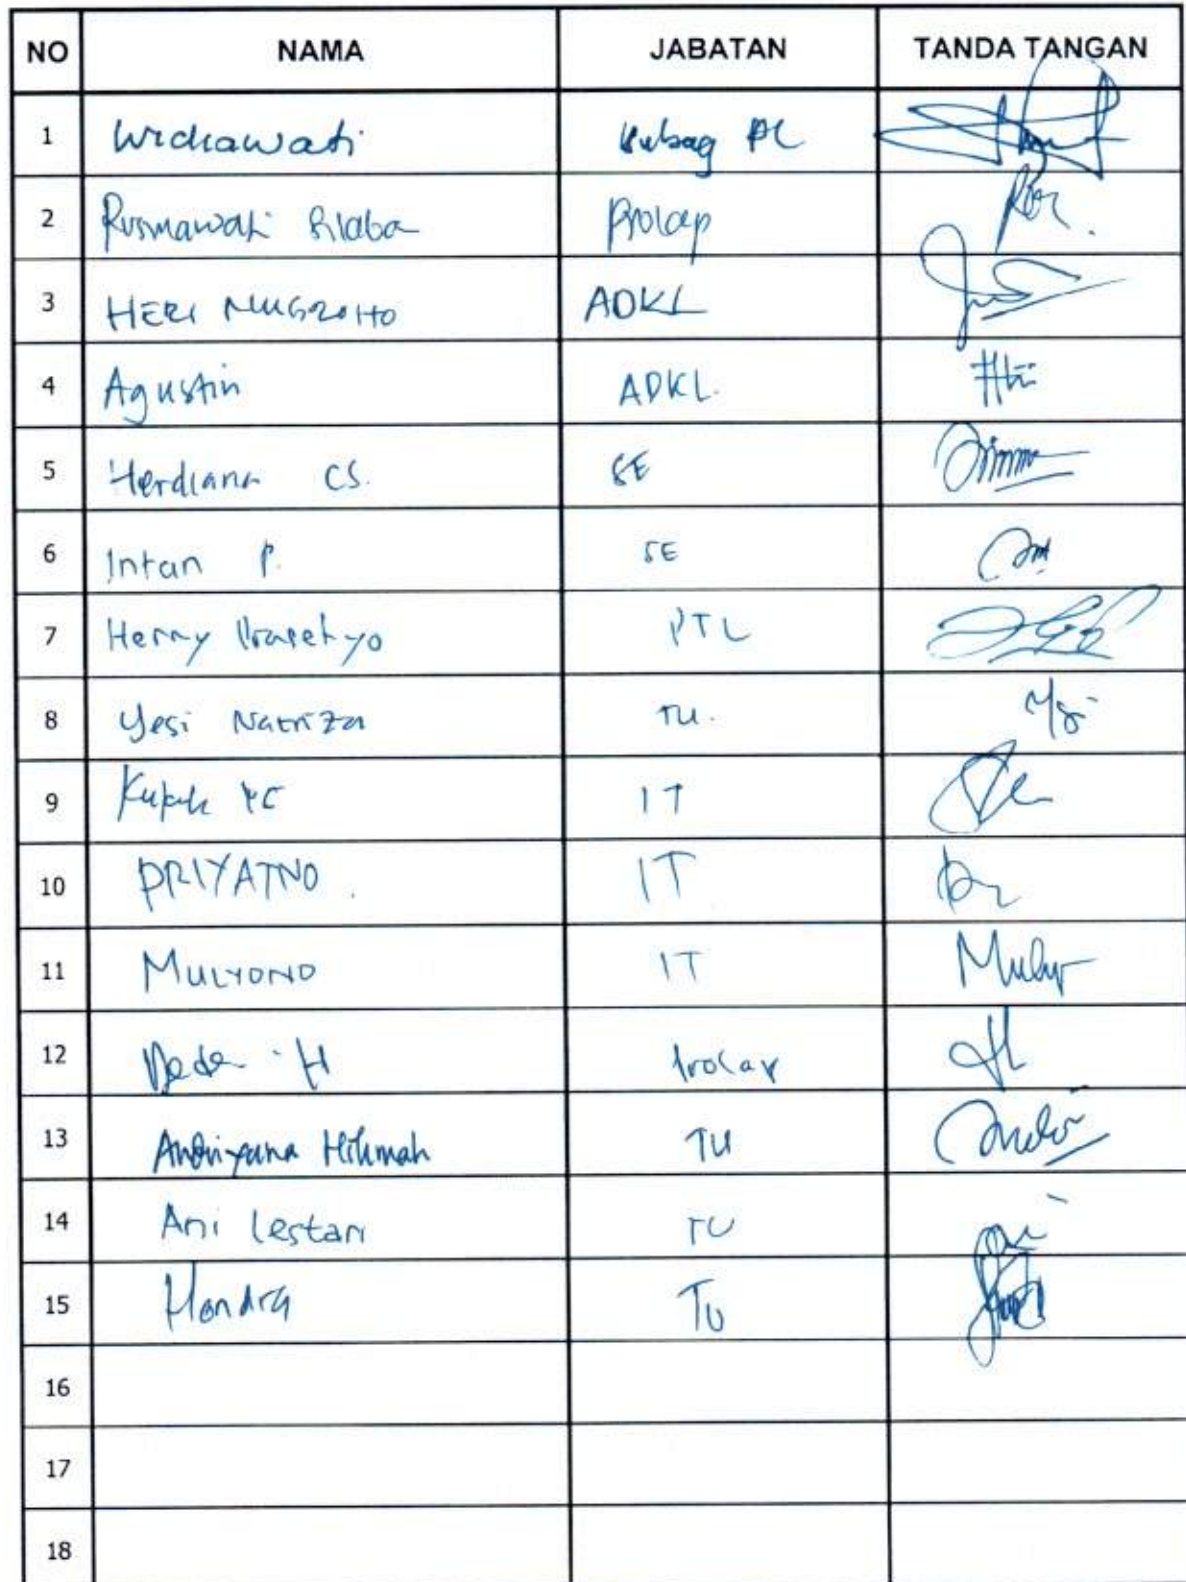 NO NAMA JABATAN TANDA TANGAN
1 Widiawati Kubag
2 Rusmawati Prolap
3 HERI NUGROHO ADKL
4 Agustin ADKL.
5 Herdiana CS. SE
6 Intan P. SE
7 Henry Prasetyo PTL
8 Yesi Natriza TU.
9 IT
10 PRIYATNO. IT
11 MULYONO IT
12 Dede H Prolap
13 Andriyana Hikmah TU
14 Ani Lestari TU
15 Hendra TU
16
17
18